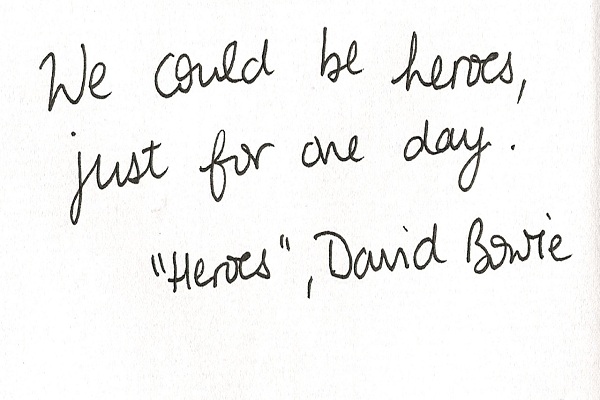 We could be heroes,
just for one day.
"Heroes", David Bowie